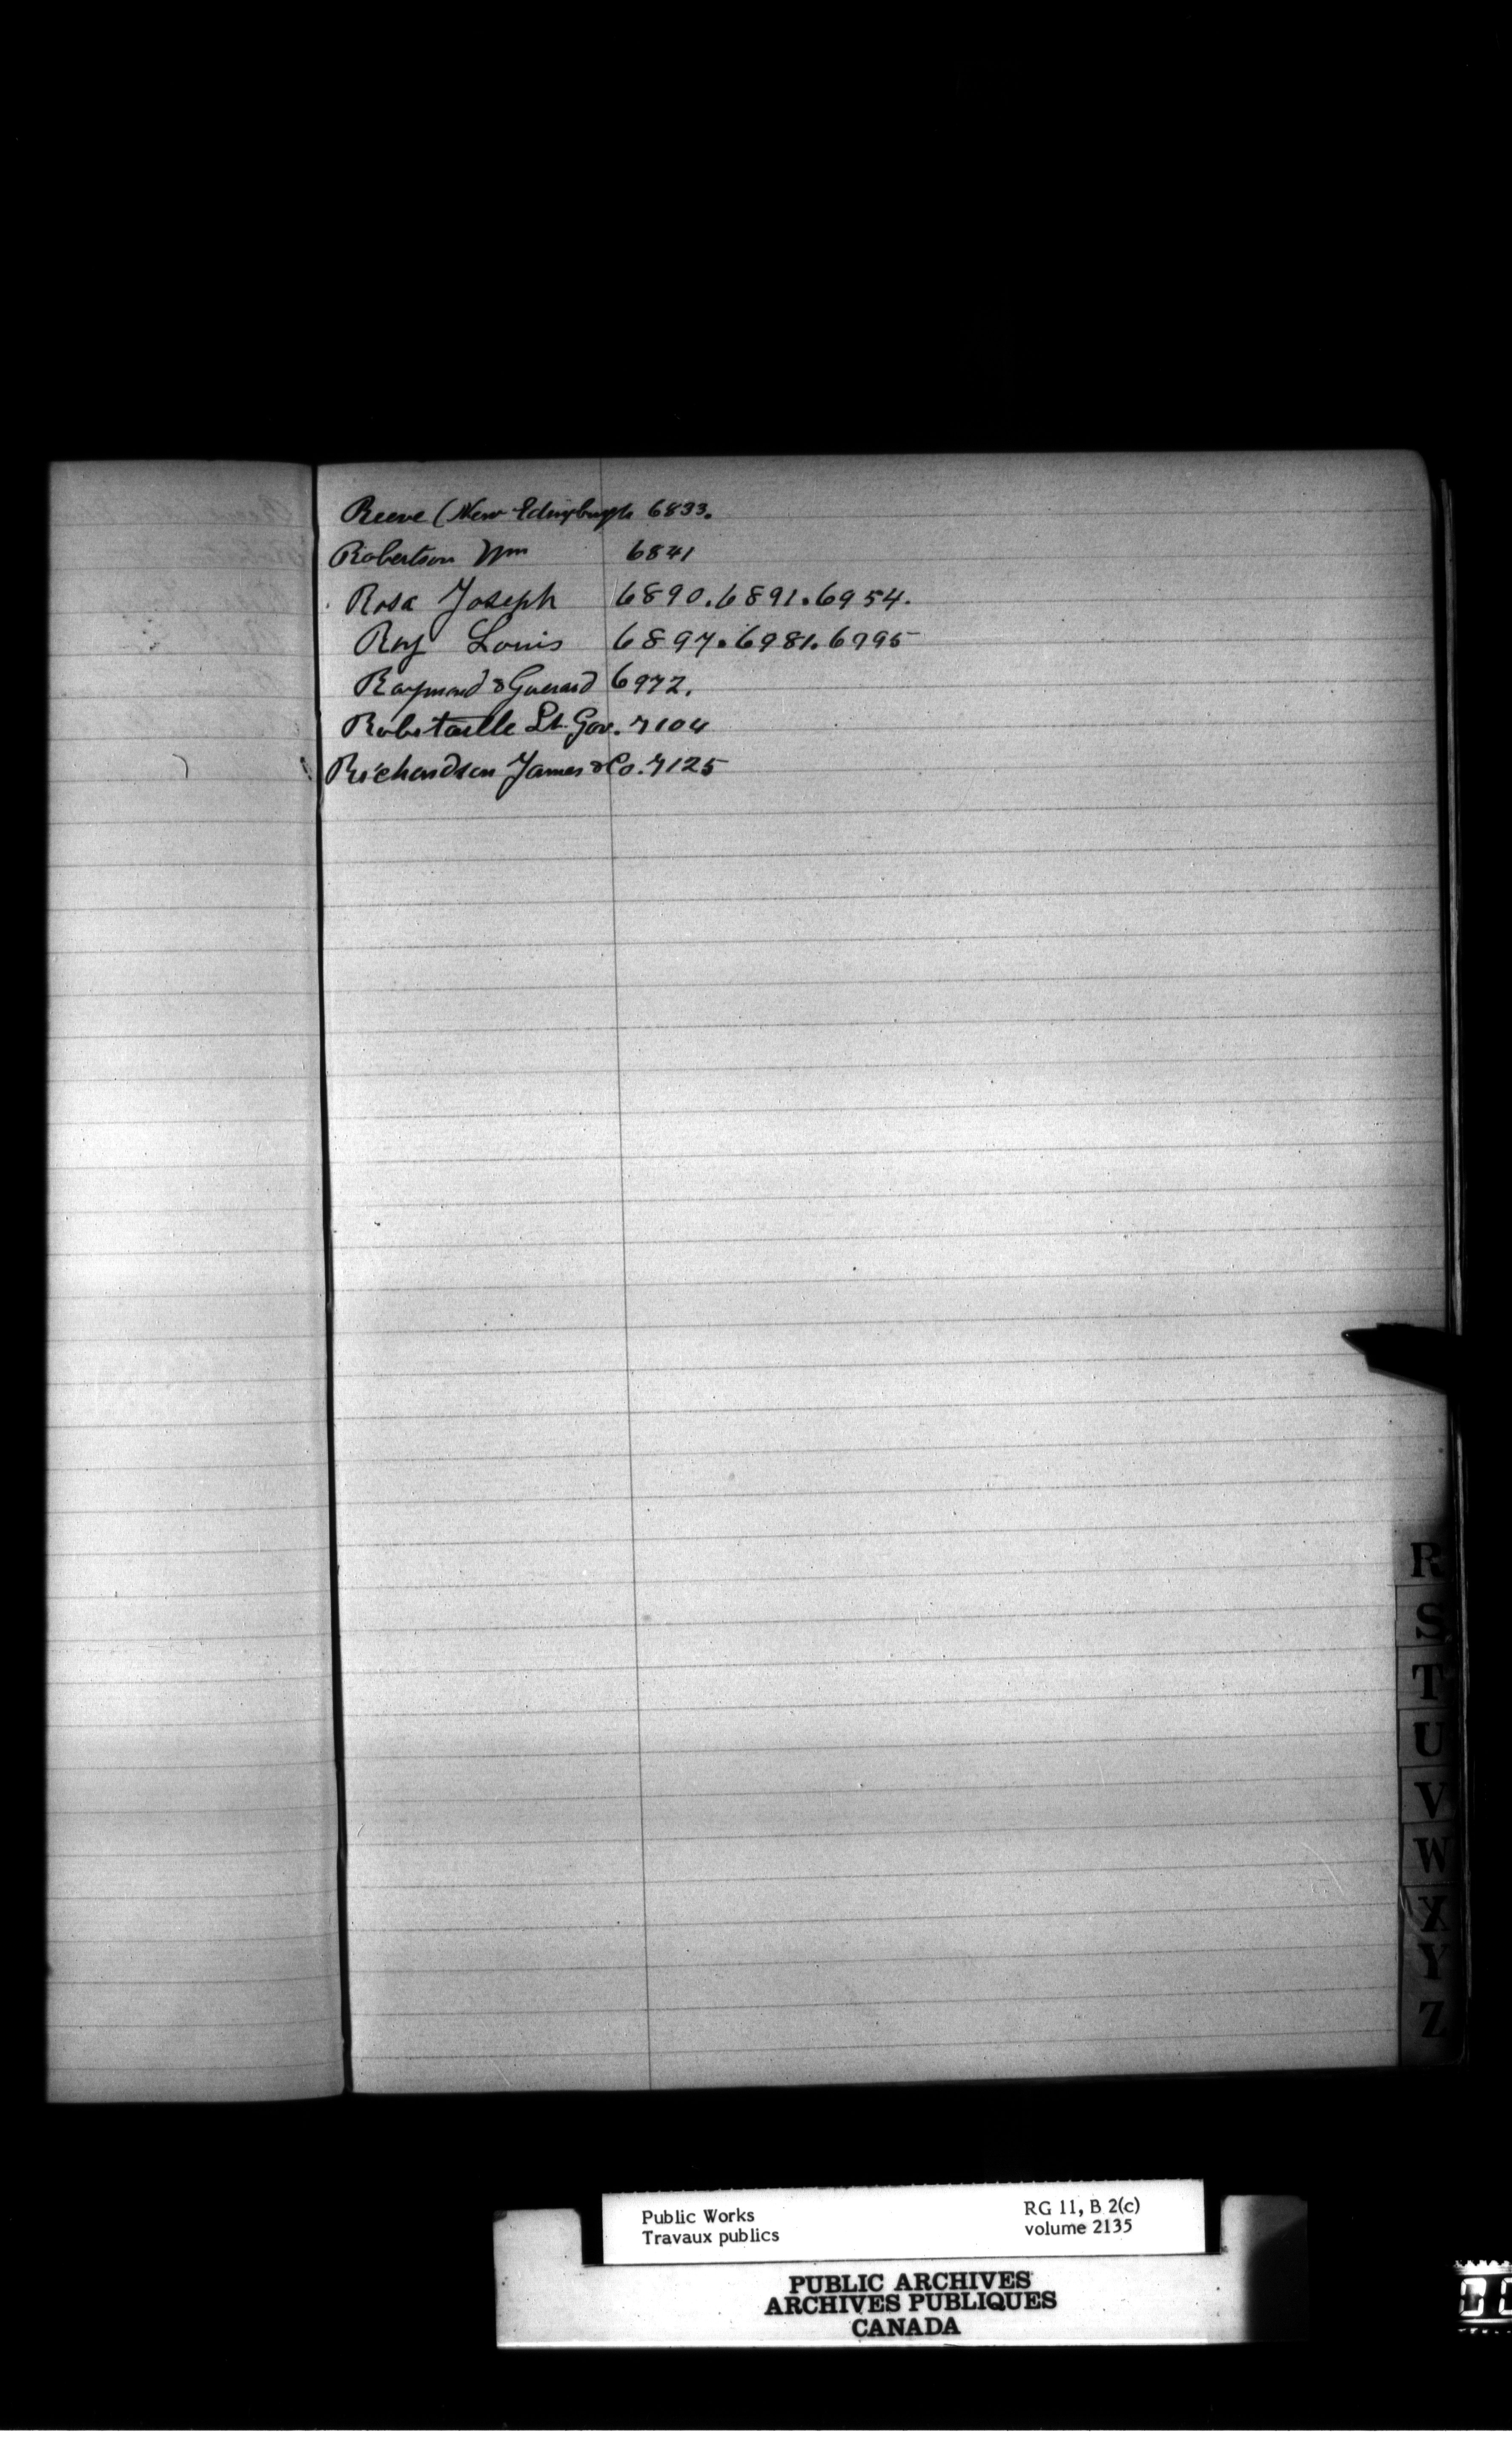 Reeve (New Edinburgh 6833.
Robertson Wm 6841
Rosa Joseph 6890.6891.6954.
Roy Louis 6897.6981.6995
Raymond & Guerard 6972.
Robitaille Lt. Gov. 7104
Richardson James & Co. 7125
R
S
T
U
V
W
X
Y
Z
Public Works
Travaux publics
RG 11, B 2(c)
volume 2135
PUBLIC ARCHIVES
ARCHIVES PUBLIQUES
CANADA